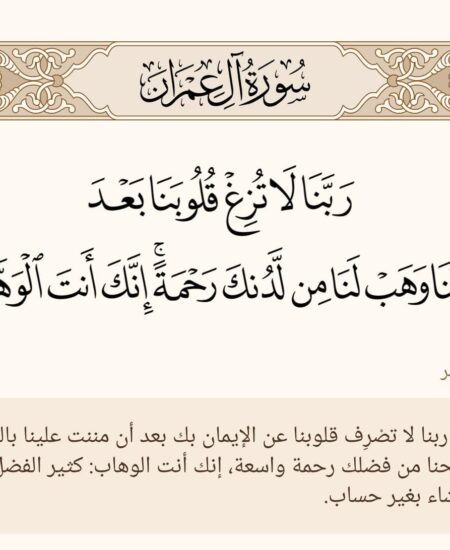 سُورَةُ آلِ عِمْرَان
رَبَّنَا لَا تُزِغْ قُلُوبَنَا بَعْدَ
وَهَبْ لَنَا مِن لَّدُنكَ رَحْمَةً ۚ إِنَّكَ أَنتَ
ربنا لا تصْرِف قلوبنا عن الإيمان بك بعد أن مننت علينا
من فضلك رحمة واسعة، إنك أنت الوهاب: كثير الفضل
بغير حساب.